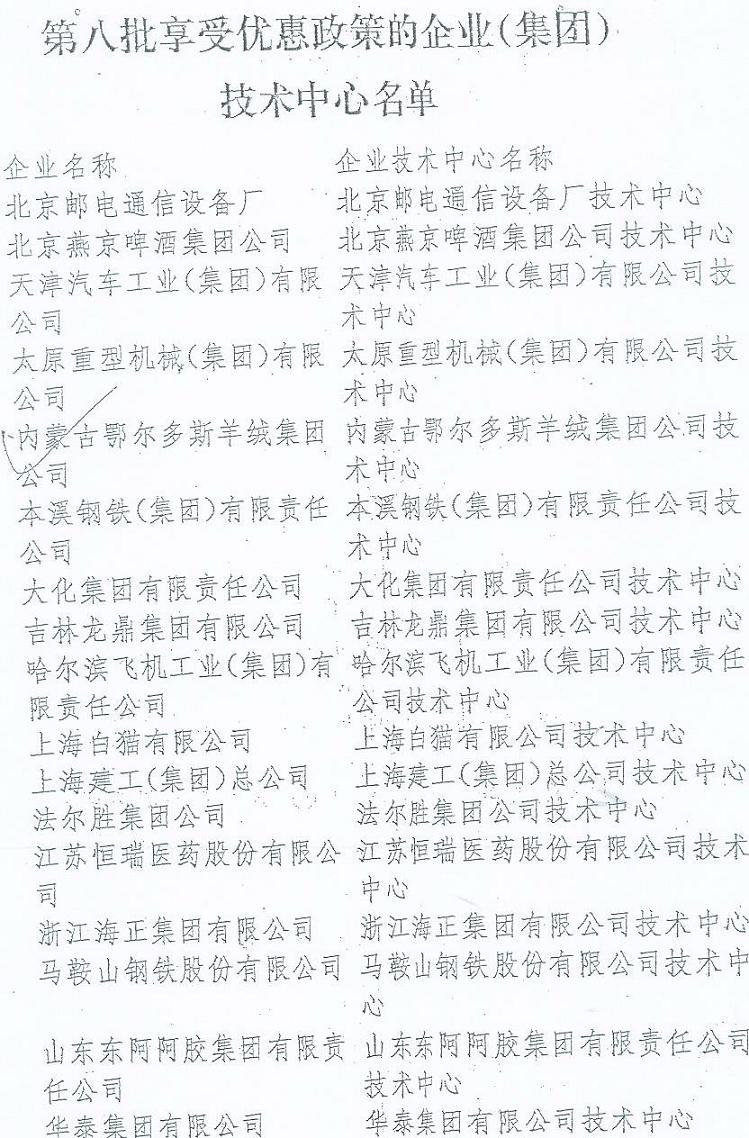 第八批享受优惠政策的企业(集团)
技术中心名单
企业名称 企业技术中心名称
北京邮电通信设备厂 北京邮电通信设备厂技术中心
北京燕京啤酒集团公司 北京燕京啤酒集团公司技术中心
天津汽车工业(集团)有限 天津汽车工业(集团)有限公司技
公司 术中心
太原重型机械(集团)有限 太原重型机械(集团)有限公司技
公司 术中心
内蒙古鄂尔多斯羊绒集团 内蒙古鄂尔多斯羊绒集团公司技
公司 术中心
本溪钢铁(集团)有限责任 本溪钢铁(集团)有限责任公司技
公司 术中心
大化集团有限责任公司 大化集团有限责任公司技术中心
吉林龙鼎集团有限公司 吉林龙鼎集团有限公司技术中心
哈尔滨飞机工业(集团)有 哈尔滨飞机工业(集团)有限责任
限责任公司 公司技术中心
上海白猫有限公司 上海白猫有限公司技术中心
上海建工(集团)总公司 上海建工(集团)总公司技术中心
法尔胜集团公司 法尔胜集团公司技术中心
江苏恒瑞医药股份有限公 江苏恒瑞医药股份有限公司技术
司 中心
浙江海正集团有限公司 浙江海正集团有限公司技术中心
马鞍山钢铁股份有限公司 马鞍山钢铁股份有限公司技术中
心
山东东阿阿胶集团有限责 山东东阿阿胶集团有限责任公司
任公司 技术中心
华泰集团有限公司 华泰集团有限公司技术中心